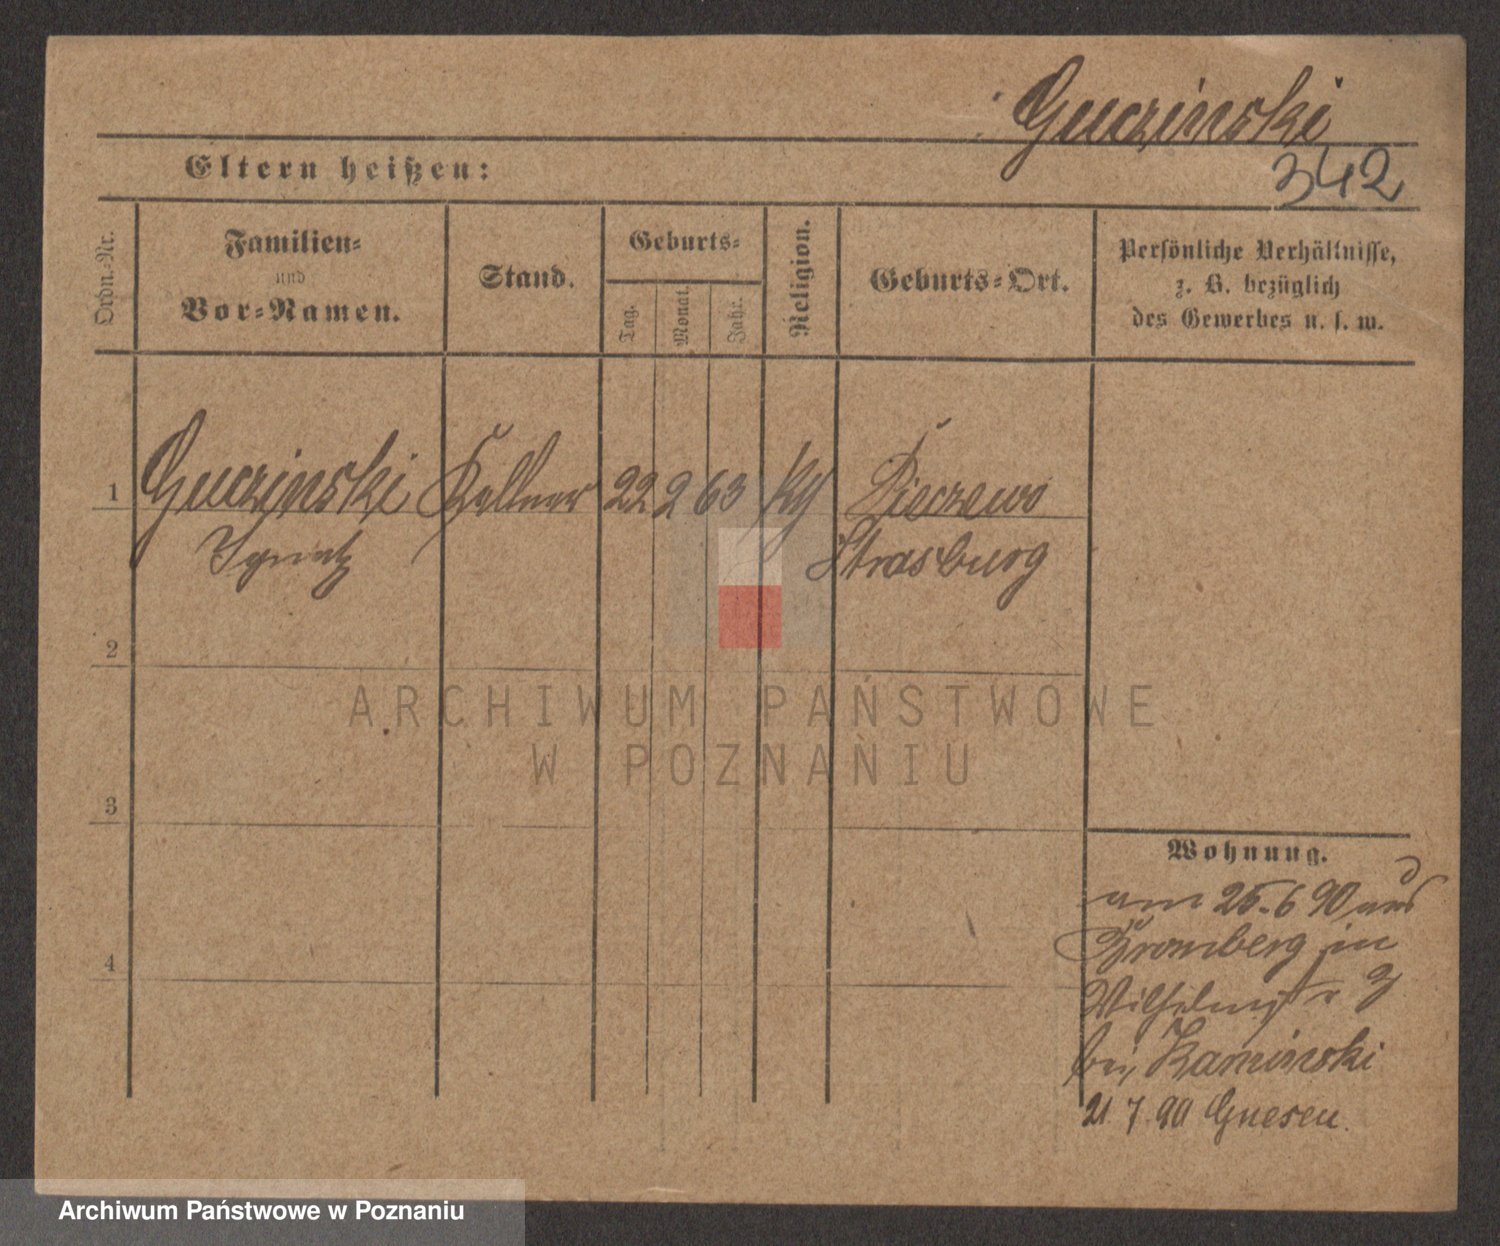 Guczinski
342
Eltern heißen:
Ordn.-Nr.
Familien-
und
Vor-Namen.
Stand.
Geburts-
Tag.
Monat.
Jahr.
Religion.
Geburts-Ort.
Persönliche Verhältnisse,
z. B. bezüglich
des Gewerbes u. s. w.
1 Guczinski Kellner 22 2 63 Pieczewo
Ignatz Strasburg
2
3
4
ARCHIWUM PAŃSTWOWE
W POZNANIU
Wohnung.
am 25.6 90 aus
Bromberg in
Wilhelmstr
bei Kaminski
21.7.90 Gnesen.
Archiwum Państwowe w Poznaniu